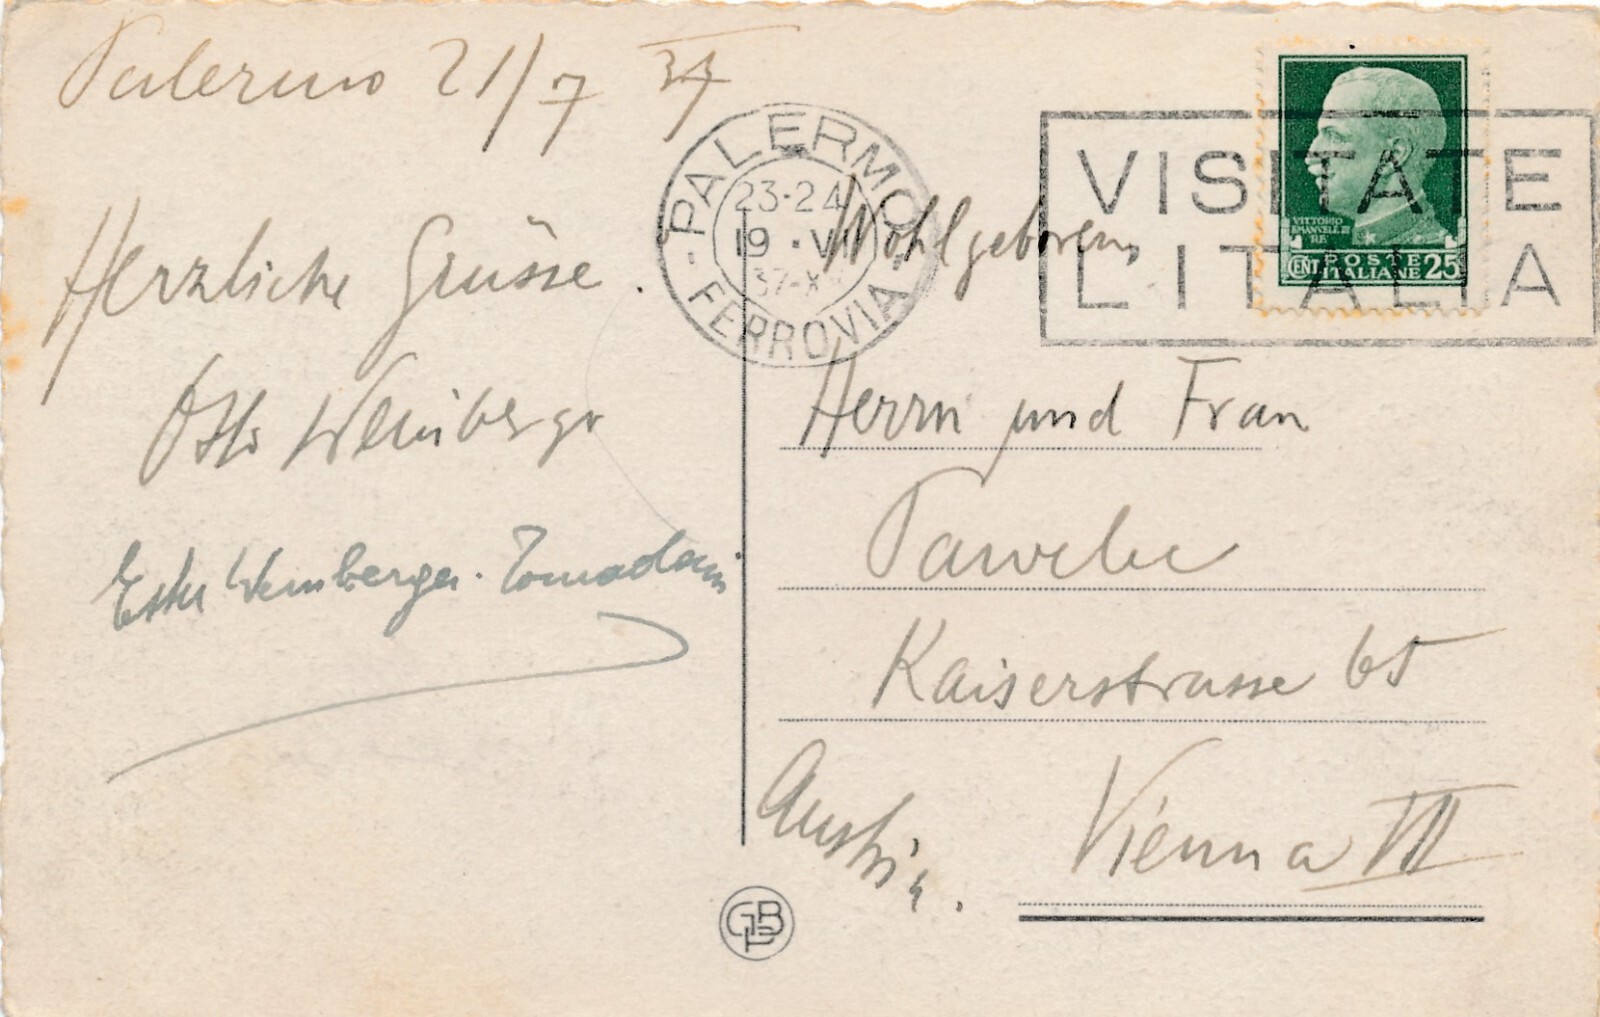 Palermo 21/7 37
Herzliche Grüsse.
Otto Weinberger
Weinberger-
PALERMO
23-24
19 · VII
37-X
- FERROVIA -
VISITATE
L'ITALIA
VITTORIO
EMANUELE III
RE
CENT POSTE
ITALIANE 25
Wohlgeboren
Herrn und Frau
Kaiserstrasse 65
Vienna VII
Austria.
GBP